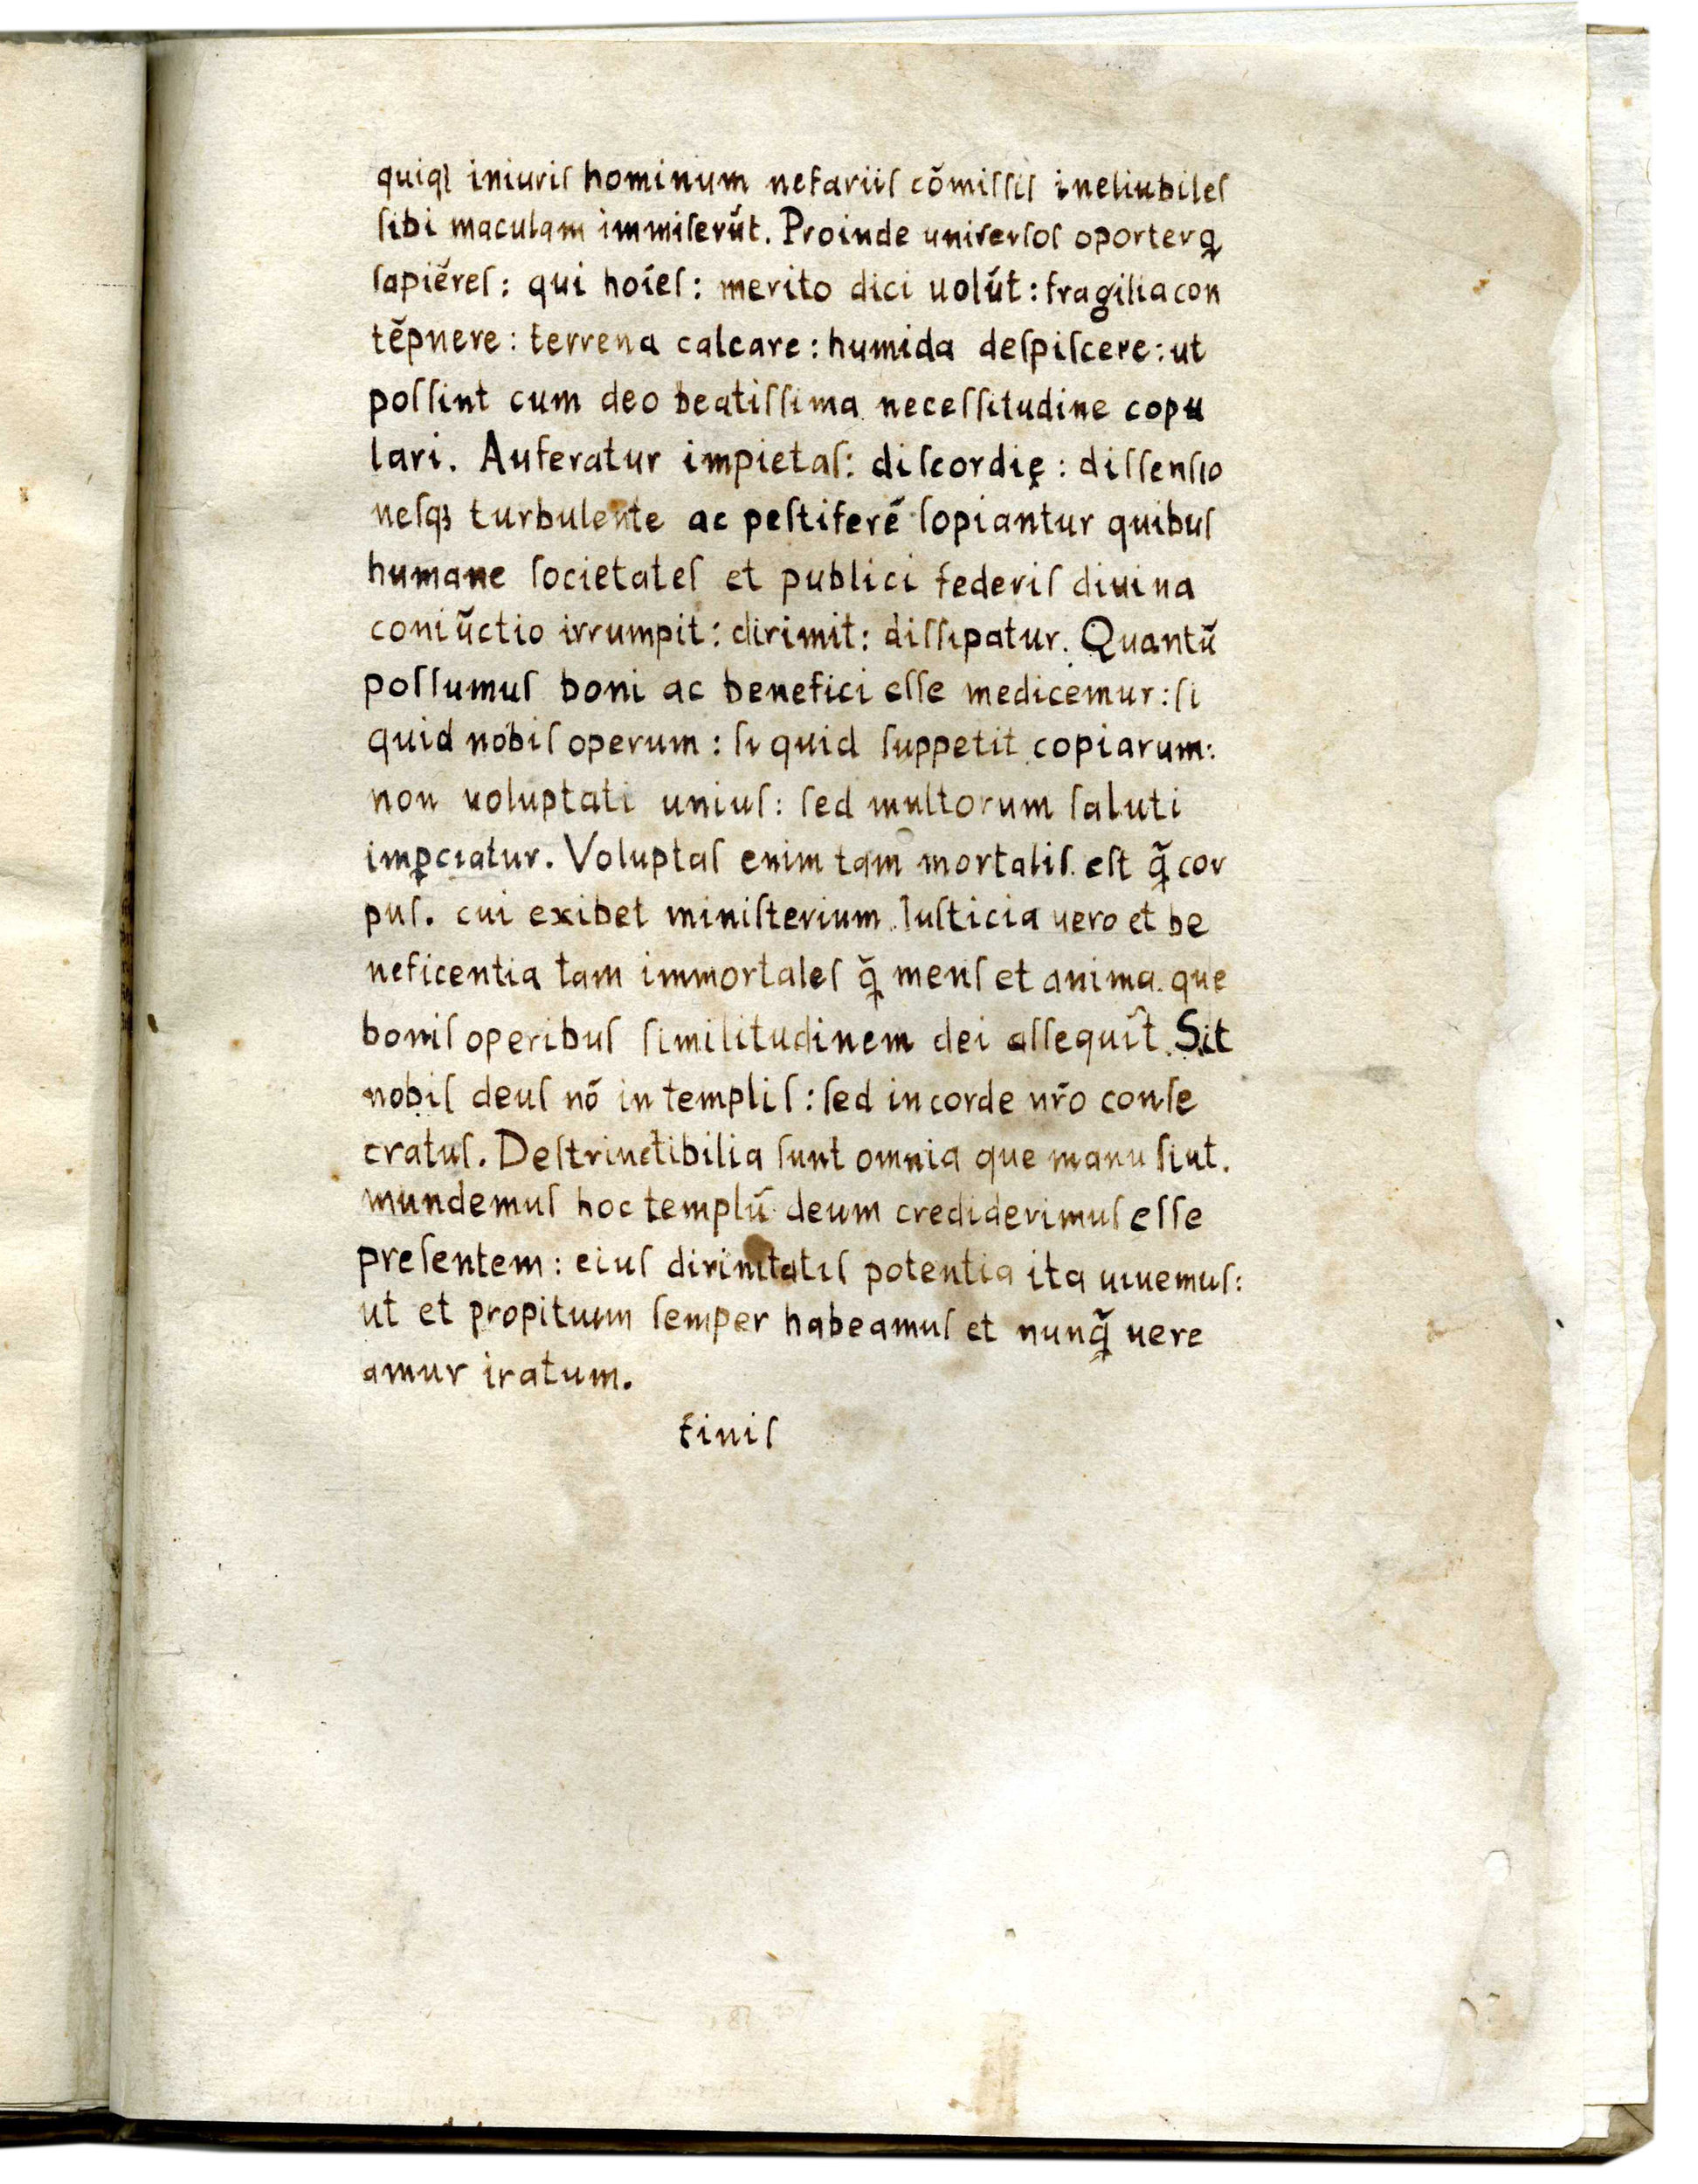 quiqꝫ iniuriſ hominum nefariiſ cōmiſſiſ ineliubileſ
ſibi maculam immiſerūt. Proinde univerſoſ oporter q̄
ſapiēreſ: qui hoīeſ: merito dici uolūt: fragilia con
tēpnere: terrena calcare: humida deſpiſcere: ut
poſſint cum deo beatiſſima neceſſitudine copu
lari. Auferatur impietaſ: diſcordię: diſſenſio
neſqꝫ turbulente ac peſtiferē ſopiantur quibuſ
humane ſocietateſ et publici federiſ diuina
coniūctio irrumpit: dirimit: diſſipatur. Quantū
poſſumuſ boni ac benefici eſſe medicemur: ſi
quid nobiſ operum: ſi quid ſuppetit copiarum:
non uoluptati uniuſ: ſed multorum ſaluti
imꝑciatur. Voluptaſ enim tam mortaliſ. eſt q̄ cor
puſ. cui exibet miniſterium. Iuſticia uero et be
neficentia tam immortaleſ q̄ menſ et anima. que
boniſ operibuſ ſimilitudinem dei aſſequīt. Sit
nobiſ deuſ nō in templiſ: ſed in corde nr̄o conſe
cratuſ. Deſtrinctibilia ſunt omnia que manu ſiut.
mundemuſ hoc templū deum crediderimuſ eſſe
preſentem: eiuſ dirinitatiſ potentia ita uiuemuſ:
ut et propituum ſemper habeamuſ et nunq̄ uere
amur iratum.
finiſ